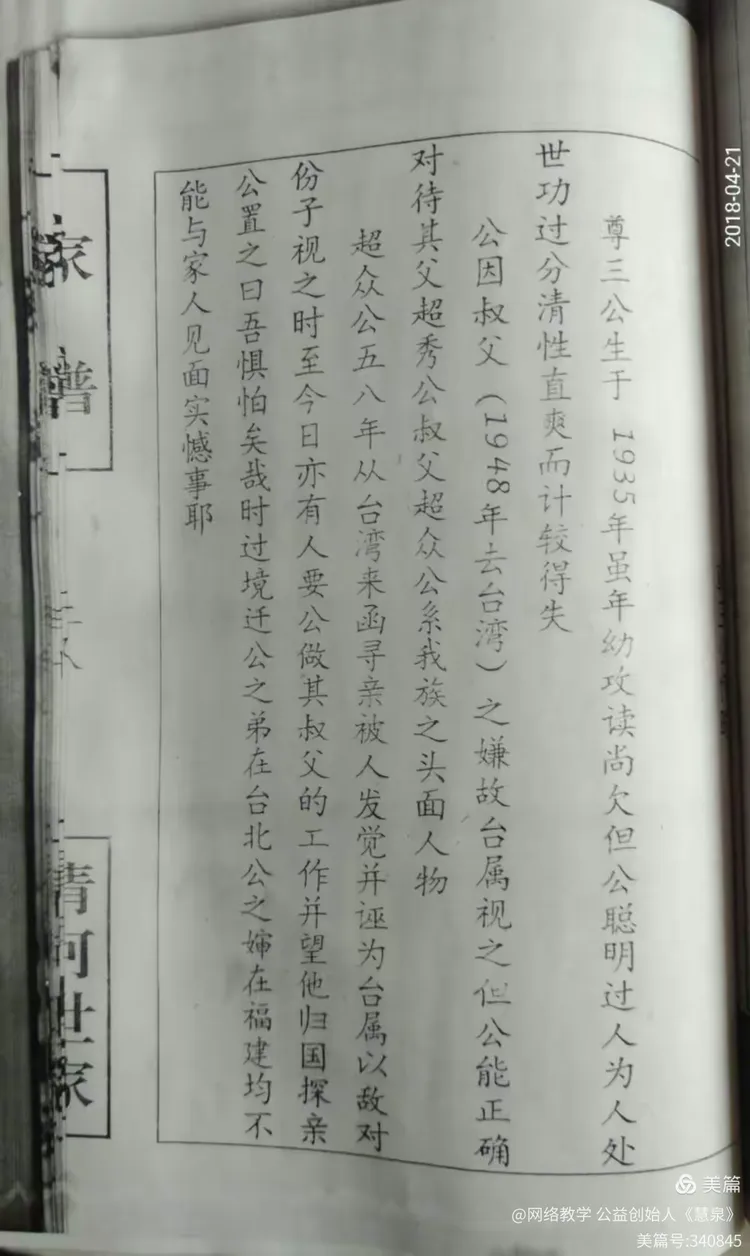 尊三公生于1935年虽年幼攻读尚欠但公聪明过人为人处
世功过分清性直爽而计较得失
公因叔父（1948年去台湾）之嫌故台属视之但公能正确
对待其父超秀公叔父超众公系我族之头面人物
超众公五八年从台湾来函寻亲被人发觉并诬为台属以敌对
份子视之时至今日亦有人要公做其叔父的工作并望他归国探亲
公置之曰吾惧怕矣哉时过境迁公之弟在台北公之婶在福建均不
能与家人见面实憾事耶
家谱
清河世家
2018-04-21
美篇
@网络教学 公益创始人《慧泉》
美篇号:340845